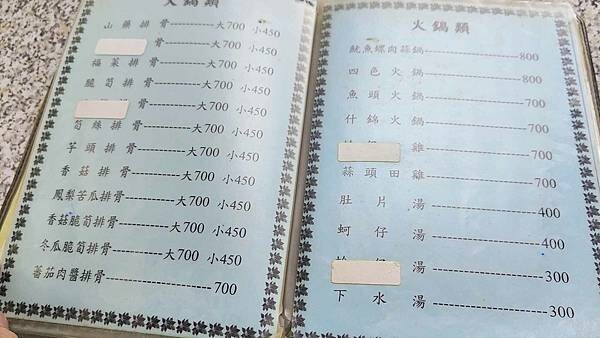 火鍋類
山藥排骨----------大700 小450
骨----------大700 小450
福菜排骨----------大700 小450
脆筍排骨----------大700 小450
骨----------大700 小450
筍絲排骨----------大700 小450
芋頭排骨----------大700 小450
香菇排骨----------大700 小450
鳳梨苦瓜排骨----------大700 小450
香菇脆筍排骨----------大700 小450
冬瓜脆筍排骨----------大700 小450
蕃茄肉醬排骨----------------700
火鍋類
魷魚螺肉蒜鍋----------------800
四色火鍋----------------800
魚頭火鍋----------------700
什錦火鍋----------------700
雞----------------700
蒜頭田雞----------------700
肚片湯----------------400
蚵仔湯----------------400
湯----------------300
下水湯----------------300